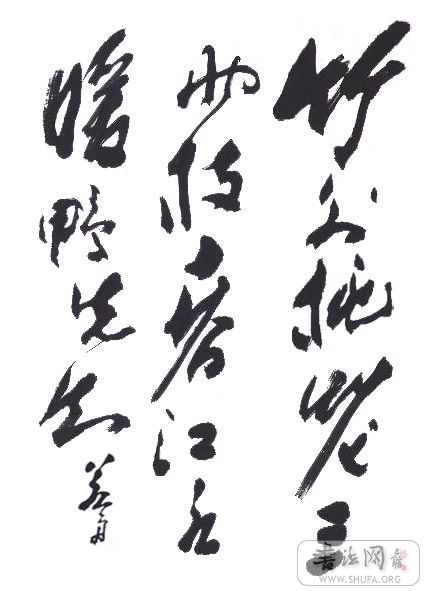 竹外桃花三
兩枝春江水
暖鴨先知
書法网
WWW.SHUFA.ORG